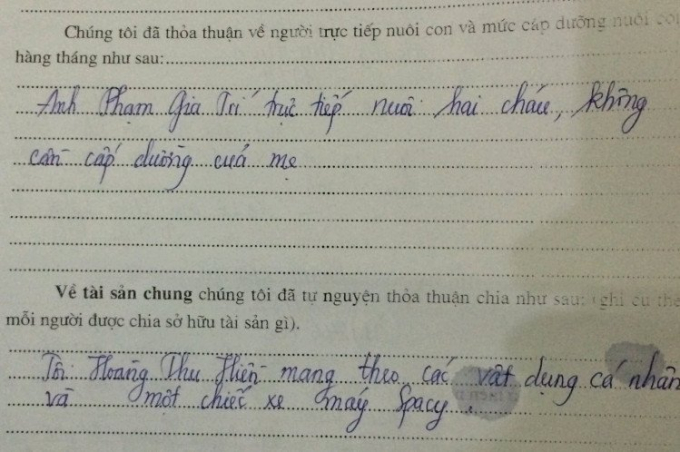 Chúng tôi đã thỏa thuận về người trực tiếp nuôi con và mức cấp dưỡng nuôi con
hàng tháng như sau:
Anh Phạm Gia Trí trực tiếp nuôi hai cháu, không
cần cấp dưỡng của mẹ
Về tài sản chung chúng tôi đã tự nguyện thỏa thuận chia như sau: (ghi cụ thể
mỗi người được chia sở hữu tài sản gì).
Tôi: Hoàng Thu Hiền mang theo các vật dụng cá nhân
và một chiếc xe máy Spacy.